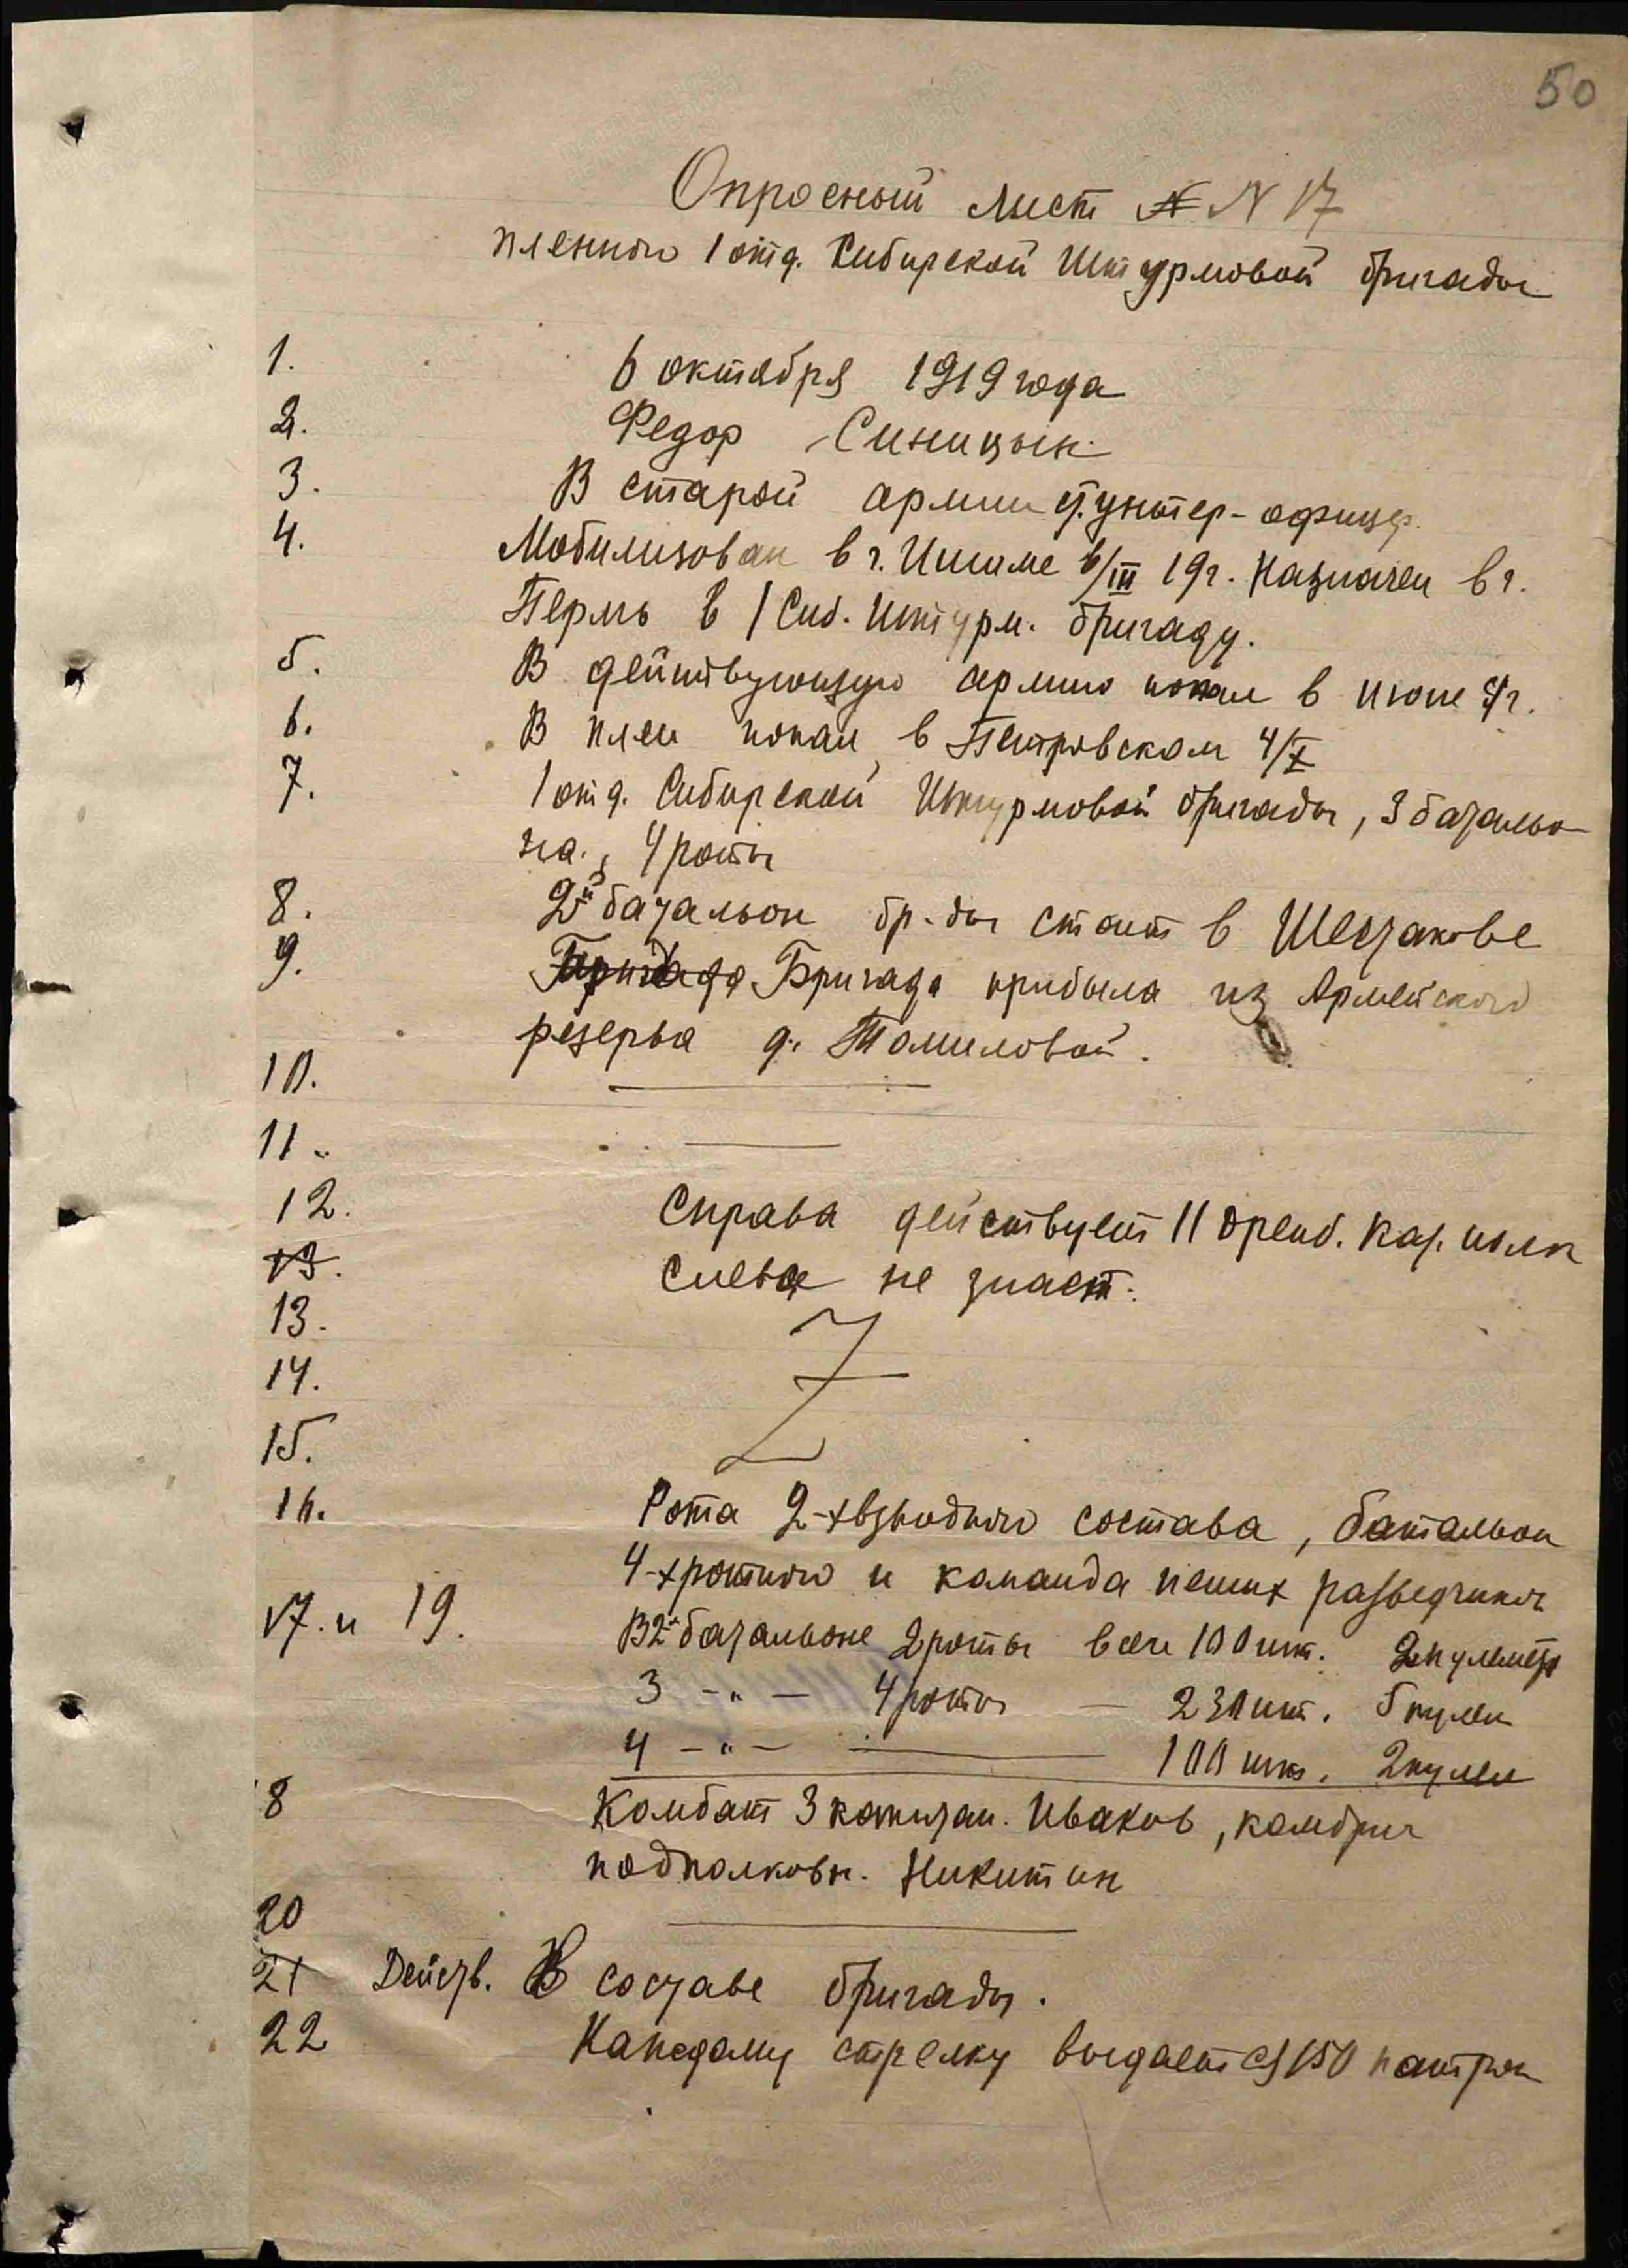 50
Опросный лист N N 17
пленного 1 отд. Сибирской Штурмовой бригады
1. 6 октября 1919 года
2. Федор Синицын
3. В старой армии ф. унтер-офицер.
4. Мобилизован в г. Ишиме 6/III 19 г. Назначен в г.
Пермь в 1 Сиб. Штурм. бригаду.
5. В действующую армию попал в июне с/г.
6. В плен попал в Петровском 4/X
7. 1 отд. Сибирской Штурмовой бригады, 3 батальо-
на, 4 роты
8. 2й батальон бр-ды стоит в Шестакове
9. Бригада Бригада прибыла из Армейского
резерва д. Томиловой.
10.
11.
12. Справа действует 11 Оренб. каз. полк
13. Слева не знает.
13.
14.
15.
16. Рота 2-хвзводного состава, батальон
4-хротного и команда пеших разведчиков
17. и 19. В 2м батальоне 2 роты всего 100 шт. 2 пулемета
3 -"- 4 роты - 230 шт. 5 пулем
4 -"- 100 шт. 2 пулем
18 Комбат 3 капитан. Иваков, комбриг
подполковн. Никитин
20
21 Действ. В составе бригады.
22 Каждому стрелку выдается 150 патрон